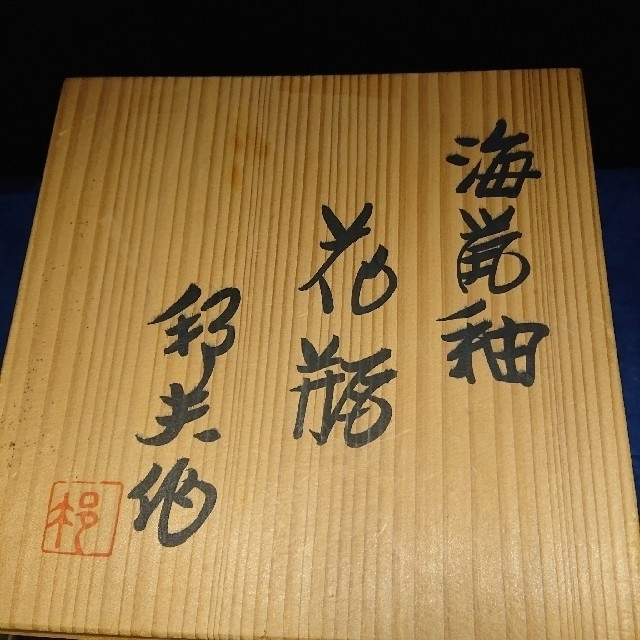 海鼠釉
花瓶
邦夫作